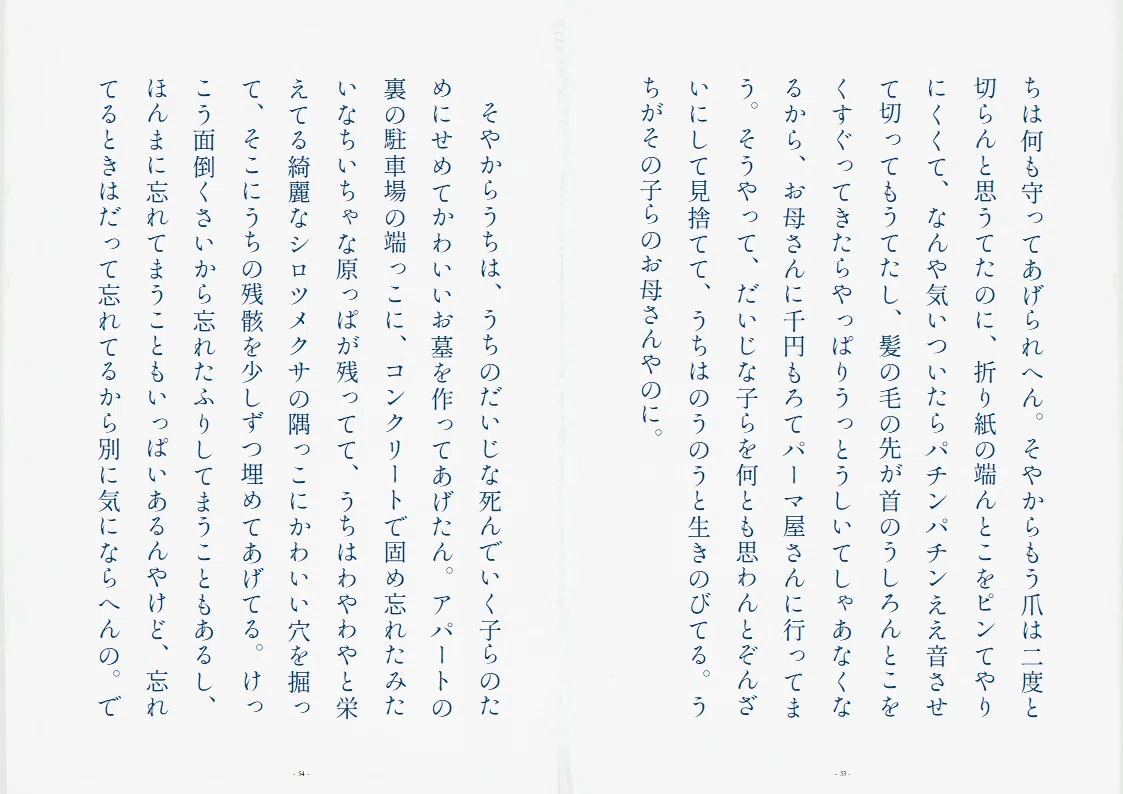 ちは何も守ってあげられへん。そやからもう爪は二度と
切らんと思うてたのに、折り紙の端んとこをピンてやり
にくくて、なんや気いついたらパチンパチンええ音させ
て切ってもうてたし、髪の毛の先が首のうしろんとこを
くすぐってきたらやっぱりうっとうしいてしゃあなくな
るから、お母さんに千円もろてパーマ屋さんに行ってま
う。そうやって、だいじな子らを何とも思わんとぞんざ
いにして見捨てて、うちはのうのうと生きのびてる。う
ちがその子らのお母さんやのに。
- 53 -
そやからうちは、うちのだいじな死んでいく子らのた
めにせめてかわいいお墓を作ってあげたん。アパートの
裏の駐車場の端っこに、コンクリートで固め忘れたみた
いなちいちゃな原っぱが残ってて、うちはわやわやと栄
えてる綺麗なシロツメクサの隅っこにかわいい穴を掘っ
て、そこにうちの残骸を少しずつ埋めてあげてる。けっ
こう面倒くさいから忘れたふりしてまうこともあるし、
ほんまに忘れてまうこともいっぱいあるんやけど、忘れ
てるときはだって忘れてるから別に気にならへんの。で
- 54 -